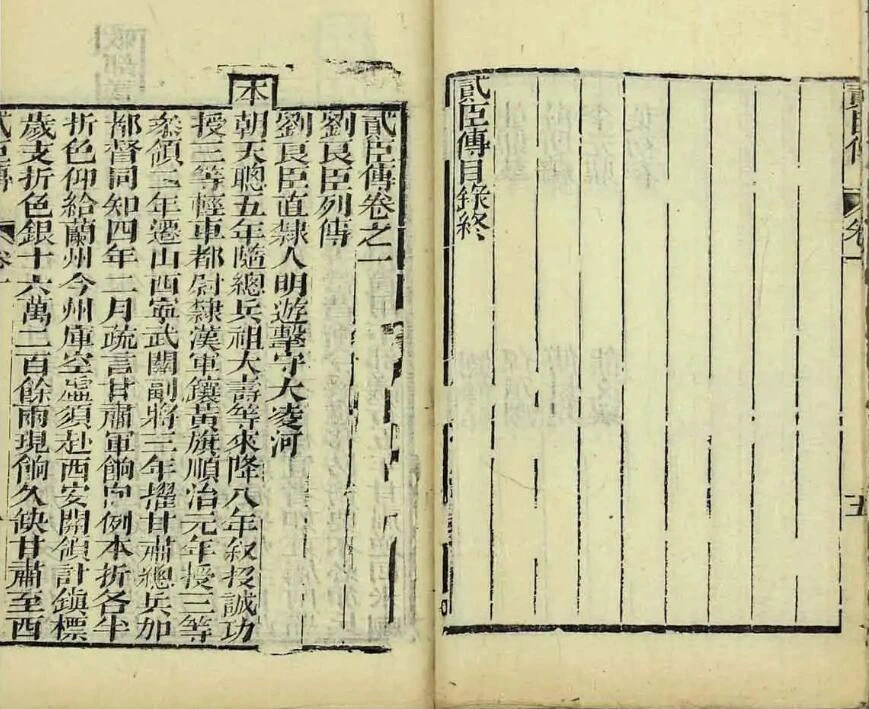 貳臣傳 卷一
五
貳臣傳目錄終
貳臣傳卷之一
劉良臣列傳
劉良臣直隸人明遊擊守大凌河
本
朝天聰五年隨總兵祖大壽等來降八年敘投誠功
授三等輕車都尉隸漢軍鑲黃旗順治元年授三等
叅領二年遷山西寧武關副將三年擢甘肅總兵加
都督同知四年二月疏言甘肅軍餉向例本折各半
折色仰給蘭州今州庫空虛須赴西安關領計鎮標
歲支折色銀十六萬二百餘兩現餉久缺甘肅至西
貳臣傳 卷一